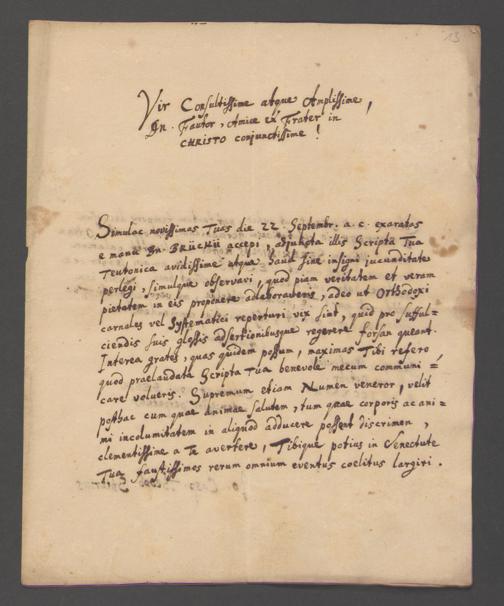 13
Vir Consultissime atque Amplissime,
Dn. Fautor, Amice et Frater in
CHRISTO conjunctissime!
Simulac novissimas Tuas die 22 Septembr. a. c. exaratas
e manu Dn. BRÜCKII accepi, adjuncta illis Scripta Tua
Teutonica avidissime utque haud sine insigni jucunditate
perlegi, simulque observavi, quod piam veritatem et veram
pietatem in eis proponere adlaboravens, adeo ut Orthodoxi
carnales vel Systematici reperturi vix sint, quid pro suffulciendis
ciendis suis glossis adsertionibusque regerere forsan queant.
Interea grates, quas quidem possum, maximas Tibi refero,
quod praelaudata Scripta Tua benevole mecum communi=
care volueris. Supremum etiam Numen veneror, velit
posthac cum quae animae salutem, tum quae corporis ac ani=
mi incolumitatem in aliquod adducere possent discrimen,
clementissime a Te avertere, Tibique potius in Senectute
Tua faustissimos rerum omnium eventus coelitus largiri.